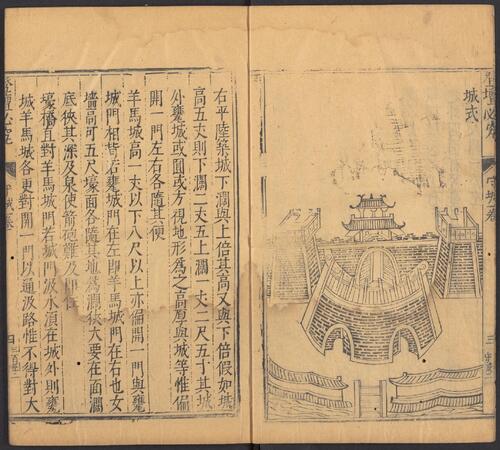 壇必究
守城卷
三
城式
右平陸築城下濶與上倍其高又與下倍假如城
高五丈則下濶二丈五上濶一丈二尺五寸其城
外甕城或圓或方視地形為之高厚與城等惟偏
開一門左右各隨其便
羊馬城高一丈以下八尺以上亦偏開一門與甕
城門相背若甕城門在左即羊馬城門在右也女
墻高可五尺壕面各隨其地為濶狹大要在面濶
底狹其深及泉使箭砲難及即佳
壕橋直對羊馬城門若城門汲水須在城外則甕
城羊馬城各更對開一門以通汲路惟不得對大
登壇必究
四